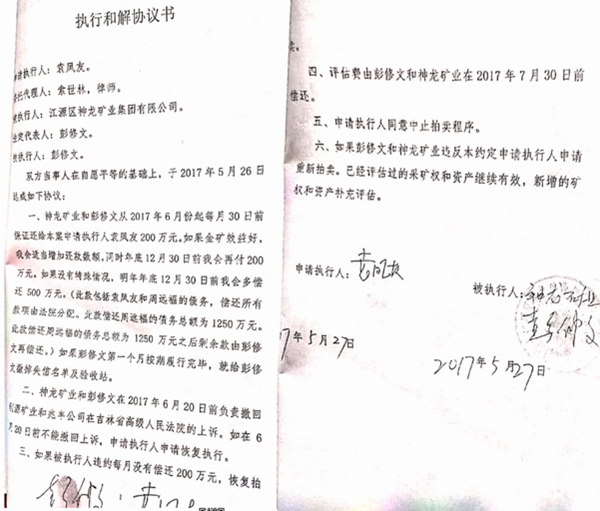 执行和解协议书
申请执行人：袁凤友。
委托代理人：索世林，律师。
被执行人：江源区神龙矿业集团有限公司。
法定代表人：彭修文。
被执行人：彭修文。
双方当事人在自愿平等的基础上，于2017年5月26日
达成如下协议：
一、神龙矿业和彭修文从2017年6月份起每月30日前
保证还给本案申请执行人袁凤友200万元。如果金矿效益好。
我会适当增加还款数额，同时年底12月30日前我会再付200
万元。如果没有特殊情况，明年年底12月30日前我会多偿
还500万元。（此款包括袁凤友和周远福的债务，偿还所有
款项由法院分配。此款偿还周远福的债务总额为1250万元。
此款偿还周远福的债务总额为1250万元之后剩余款由彭修
文再偿还。）如果彭修文第一个月按期履行完毕，就给彭修
文撤掉失信名单及验收站。
二、神龙矿业和彭修文在2017年6月20日前负责撤回
源矿业和兆半公司在吉林省高级人民法院的上诉。如在6
月20日前不能撤回上诉，申请执行人申请恢复执行。
三、如果被执行人违约每月没有偿还200万元，恢复拍
卖。
四、评估费由彭修文和神龙矿业在2017年7月30日前
偿还。
五、申请执行人同意中止拍卖程序。
六、如果彭修文和神龙矿业违反本约定申请执行人申请
重新拍卖。已经评估过的采矿权和资产继续有效，新增的矿
权和资产补充评估。
申请执行人：袁凤友
被执行人：神龙矿业
彭修文
17年5月27日
2017年5月27日